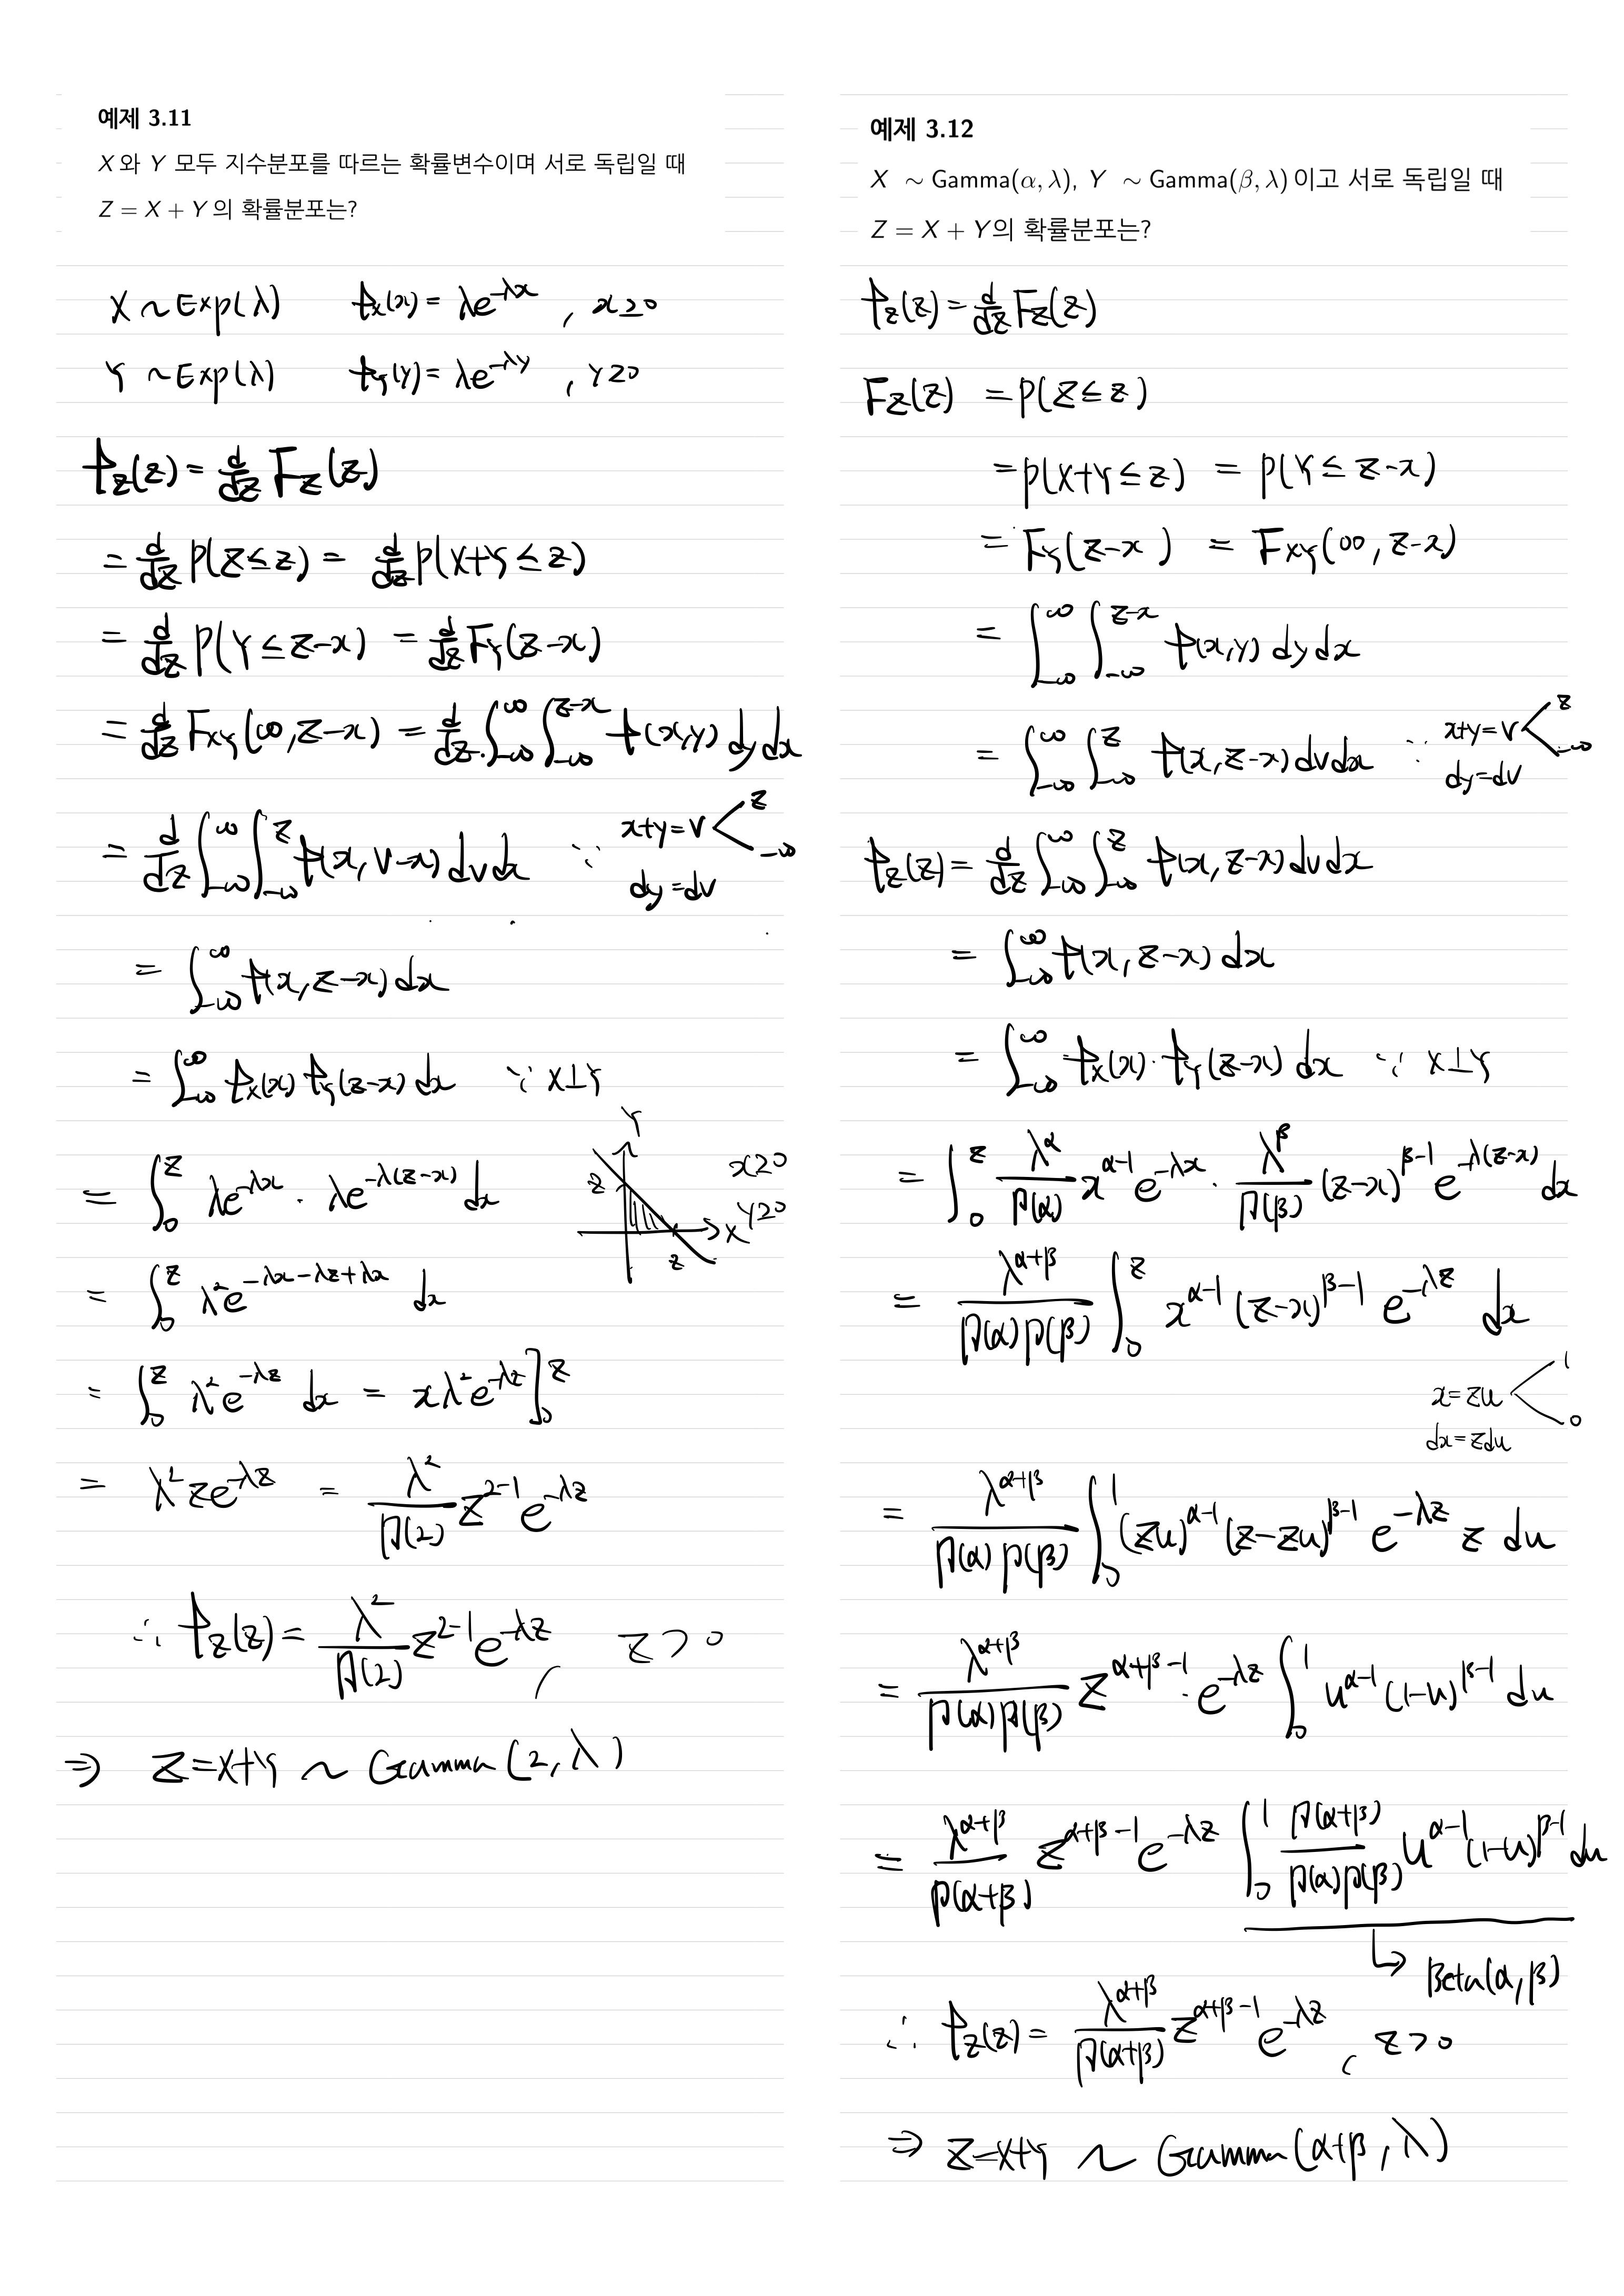 예제 3.11
X 와 Y 모두 지수분포를 따르는 확률변수이며 서로 독립일 때
Z = X + Y 의 확률분포는?
X ~ Exp(λ)   f_X(x) = λe^{-λx} , x≥0
Y ~ Exp(λ)   f_Y(y) = λe^{-λy} , y≥0
f_Z(z) = d/dz F_Z(z)
= d/dz P(Z≤z) = d/dz P(X+Y≤z)
= d/dz P(Y≤z-x) = d/dz F_Y(z-x)
= d/dz F_{XY}(∞, z-x) = d/dz ∫_{-∞}^{∞} ∫_{-∞}^{z-x} f(x,y) dy dx
= d/dz ∫_{-∞}^{∞} ∫_{-∞}^{z} f(x, v-x) dv dx ∵ x+y=v < z, -∞
dy=dv
= ∫_{-∞}^{∞} f(x, z-x) dx
= ∫_{-∞}^{∞} f_X(x) f_Y(z-x) dx ∵ X⊥Y
= ∫_0^z λe^{-λx} · λe^{-λ(z-x)} dx
Y
z
X
z
x≥0
y≥0
= ∫_0^z λ²e^{-λx-λz+λx} dx
= ∫_0^z λ²e^{-λz} dx = xλ²e^{-λz}]_0^z
= λ²ze^{-λz} = λ²/Γ(2) z^{2-1} e^{-λz}
∴ f_Z(z) = λ²/Γ(2) z^{2-1} e^{-λz} , z>0
⇒ Z=X+Y ~ Gamma(2, λ)
예제 3.12
X ~ Gamma(α, λ), Y ~ Gamma(β, λ) 이고 서로 독립일 때
Z = X + Y의 확률분포는?
f_Z(z) = d/dz F_Z(z)
F_Z(z) = P(Z≤z)
= P(X+Y≤z) = P(Y≤z-x)
= F_Y(z-x) = F_{XY}(∞, z-x)
= ∫_{-∞}^{∞} ∫_{-∞}^{z-x} f(x,y) dy dx
= ∫_{-∞}^{∞} ∫_{-∞}^{z} f(x, z-x) dv dx ∵ x+y=v < z, -∞
dy=dv
f_Z(z) = d/dz ∫_{-∞}^{∞} ∫_{-∞}^{z} f(x, z-x) dv dx
= ∫_{-∞}^{∞} f(x, z-x) dx
= ∫_{-∞}^{∞} f_X(x) · f_Y(z-x) dx ∵ X⊥Y
= ∫_0^z λ^α/Γ(α) x^{α-1} e^{-λx} · λ^β/Γ(β) (z-x)^{β-1} e^{-λ(z-x)} dx
= λ^{α+β}/Γ(α)Γ(β) ∫_0^z x^{α-1} (z-x)^{β-1} e^{-λz} dx
x=zu < 1, 0
dx=zdu
= λ^{α+β}/Γ(α)Γ(β) ∫_0^1 (zu)^{α-1} (z-zu)^{β-1} e^{-λz} z du
= λ^{α+β}/Γ(α)Γ(β) z^{α+β-1} · e^{-λz} ∫_0^1 u^{α-1} (1-u)^{β-1} du
= λ^{α+β}/Γ(α+β) z^{α+β-1} e^{-λz} ∫_0^1 Γ(α+β)/Γ(α)Γ(β) u^{α-1} (1-u)^{β-1} du
↳ Beta(α, β)
∴ f_Z(z) = λ^{α+β}/Γ(α+β) z^{α+β-1} e^{-λz} , z>0
⇒ Z=X+Y ~ Gamma(α+β, λ)